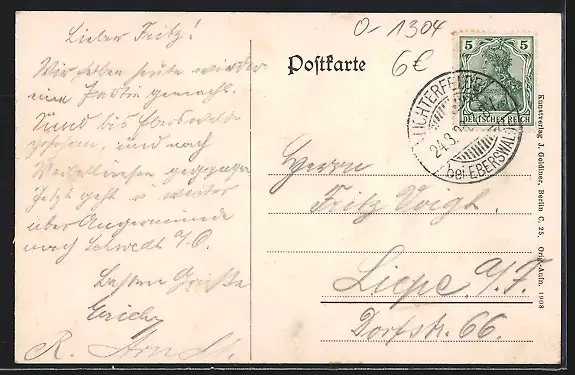 O-1304
6€
Postkarte
5 5
DEUTSCHES REICH
LICHTERFELDE
24.3.
(bei EBERSWALDE)
Lieber Fritz!
Wir haben heute wieder
eine Partie gemacht.
Sind bis
gefahren, und nach
gegangen
Jetzt geht's weiter
über Angermünde
nach Schwedt a/O.
Besten Grüße
Erich
R. Arndt.
Herrn
Fritz Voigt.
Liepe, a/F.
Dorfstr. 66.
Kunstverlag J. Goldiner, Berlin C. 25, Orig.-Aufn. 1908